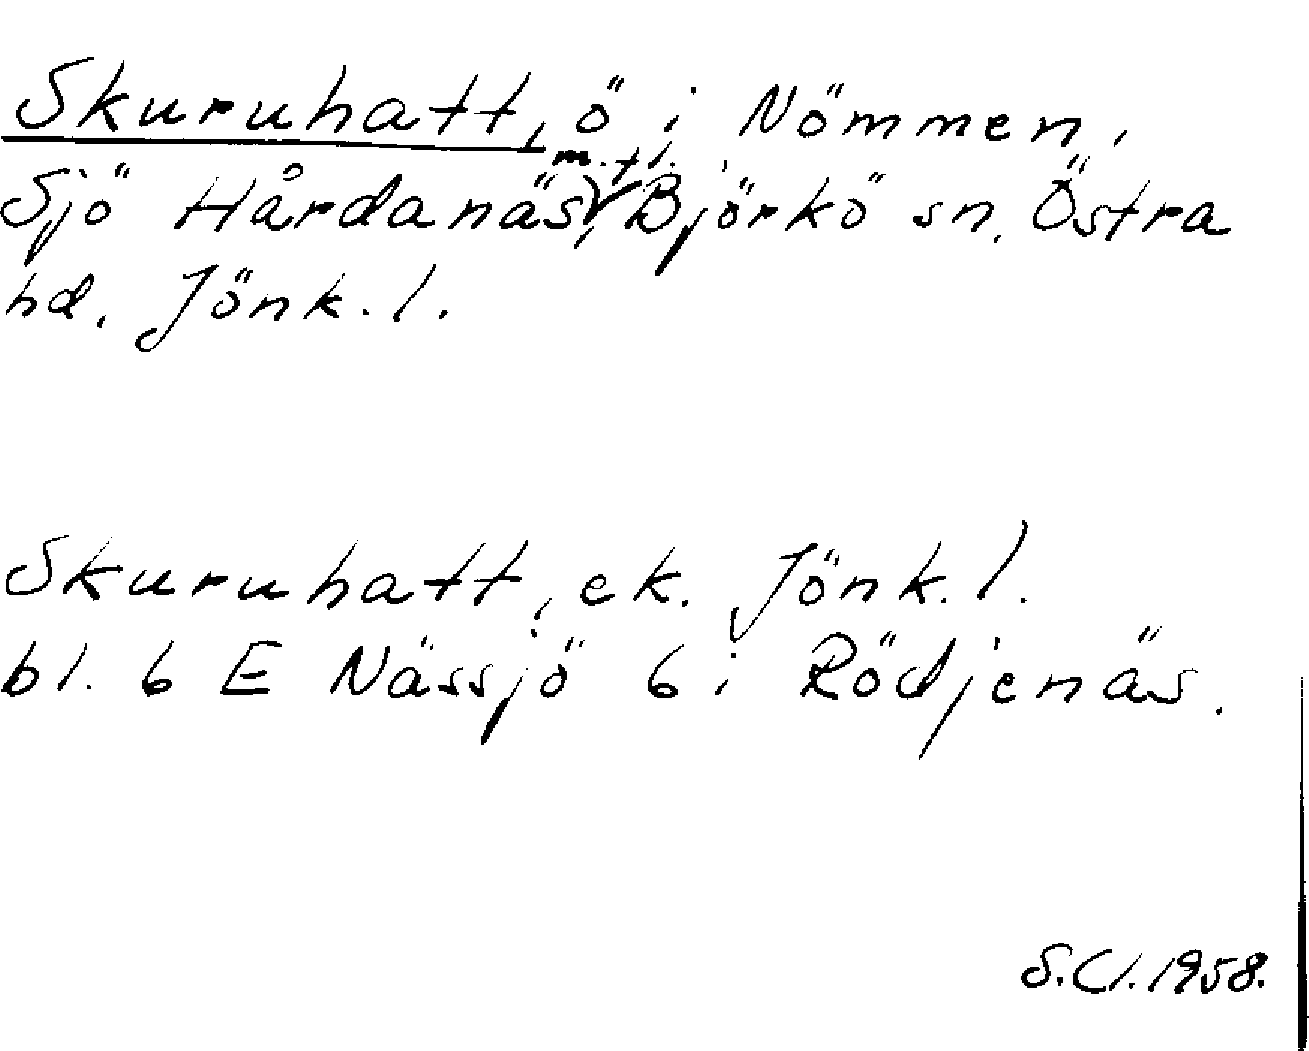 Skuruhatt, ö i Nömmen,
Sjö Hårdanäs m.fl., Björkö sn. Östra
hd. Jönk. l.
Skuruhatt, ek. Jönk. l.
bl. 6 E Nässjö 6 i Rödjenäs.
S.Cl. 1958.